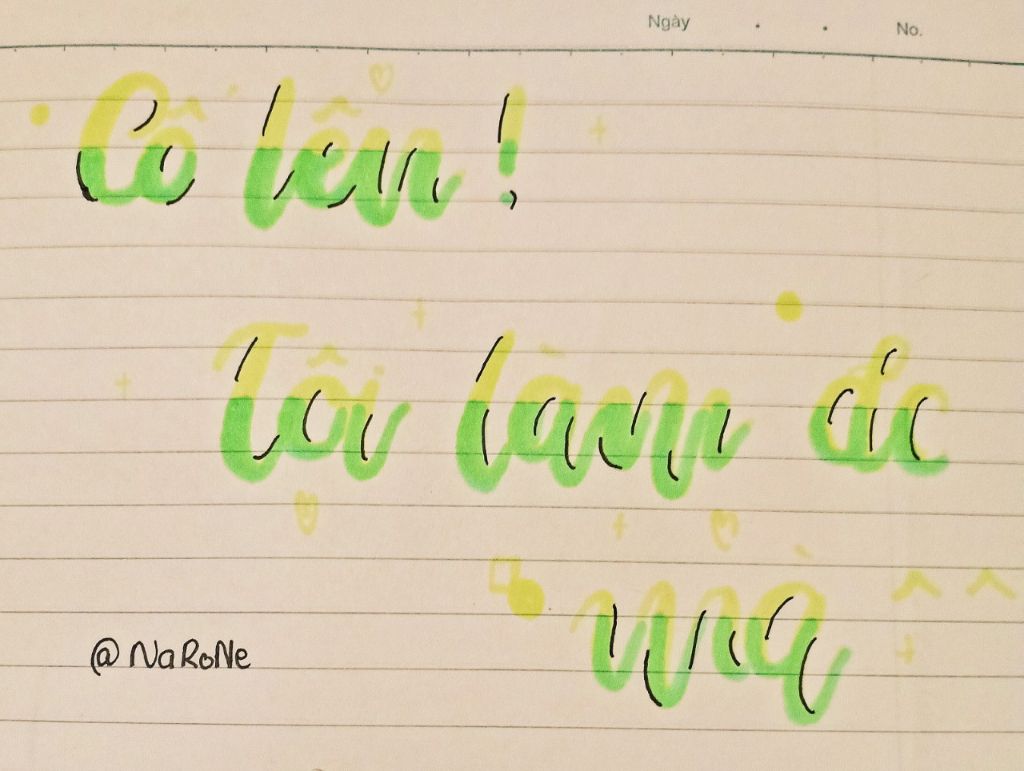 Ngày . . No.
Cố lên !
Tôi làm đc
mà ^ ^
@NaRoNe